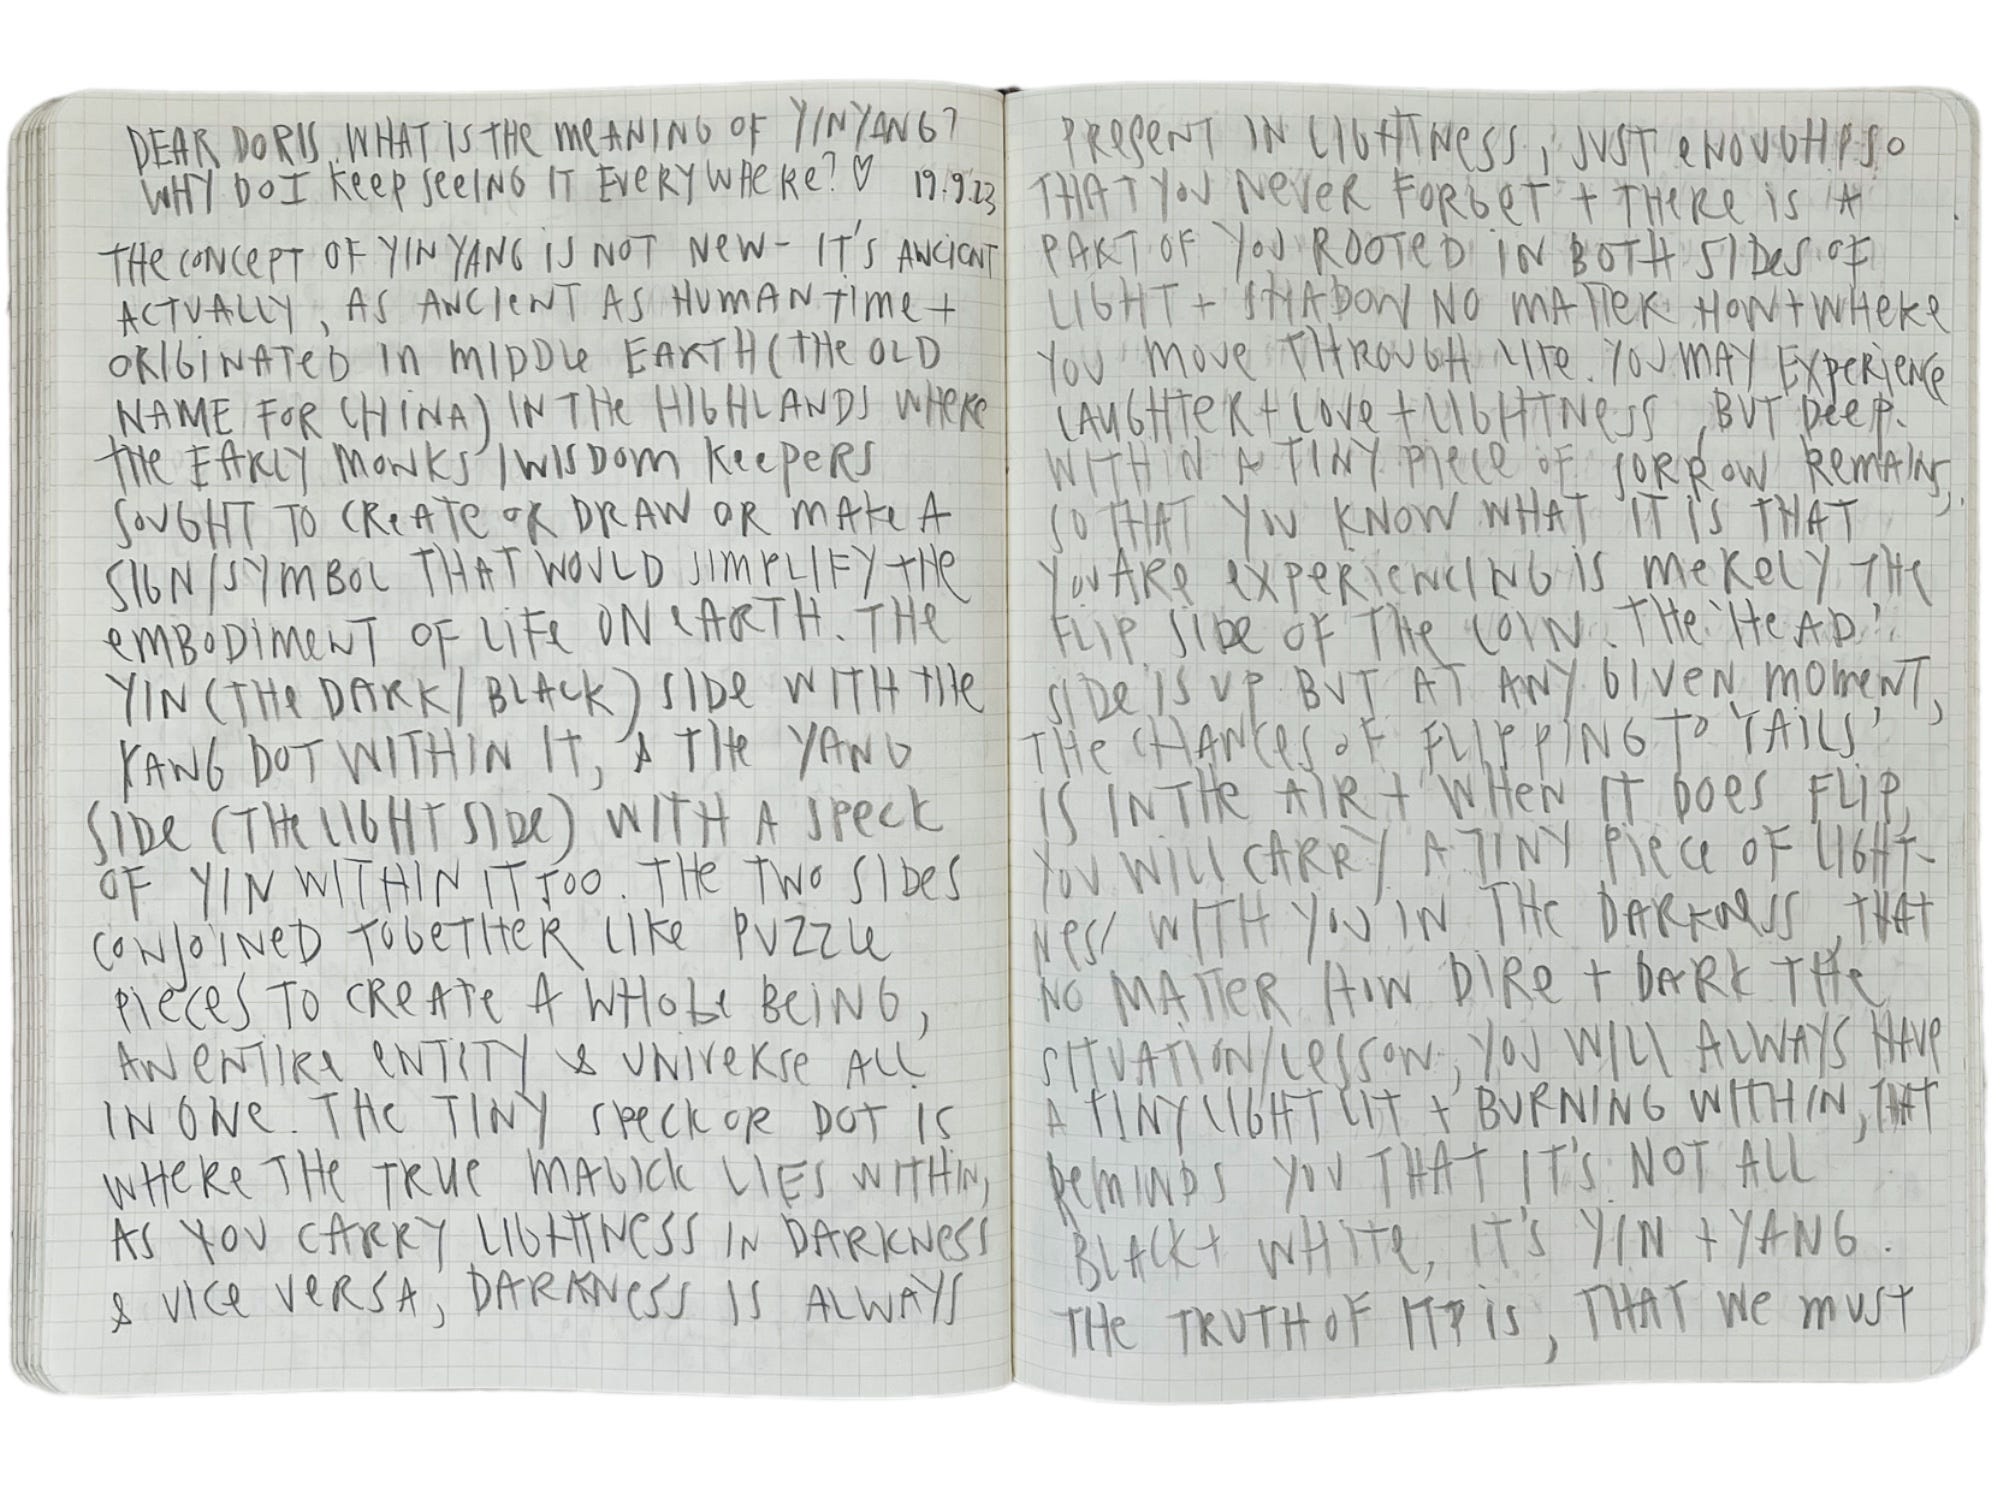 DEAR DORIS, WHAT IS THE MEANING OF YIN YANG?
WHY DO I KEEP SEEING IT EVERYWHERE? ♡ 19.9.23
THE CONCEPT OF YIN YANG IS NOT NEW - IT'S ANCIENT
ACTUALLY, AS ANCIENT AS HUMAN TIME +
ORIGINATED IN MIDDLE EARTH (THE OLD
NAME FOR CHINA) IN THE HIGHLANDS WHERE
THE EARLY MONKS / WISDOM KEEPERS
SOUGHT TO CREATE OR DRAW OR MAKE A
SIGN/SYMBOL THAT WOULD SIMPLIFY THE
EMBODIMENT OF LIFE ON EARTH. THE
YIN (THE DARK/BLACK) SIDE WITH THE
YANG DOT WITHIN IT, & THE YANG
SIDE (THE LIGHT SIDE) WITH A SPECK
OF YIN WITHIN IT TOO. THE TWO SIDES
CONJOINED TOGETHER LIKE PUZZLE
PIECES TO CREATE A WHOLE BEING,
AN ENTIRE ENTITY & UNIVERSE ALL
IN ONE. THE TINY SPECK OR DOT IS
WHERE THE TRUE MAGICK LIES WITHIN,
AS YOU CARRY LIGHTNESS IN DARKNESS
& VICE VERSA, DARKNESS IS ALWAYS
PRESENT IN LIGHTNESS, JUST ENOUGH SO
THAT YOU NEVER FORGET + THERE IS A
PART OF YOU ROOTED IN BOTH SIDES OF
LIGHT + SHADOW NO MATTER HOW + WHERE
YOU MOVE THROUGH LIFE. YOU MAY EXPERIENCE
LAUGHTER + LOVE + LIGHTNESS, BUT DEEP
WITHIN A TINY PIECE OF SORROW REMAINS,
SO THAT YOU KNOW WHAT IT IS THAT
YOU ARE EXPERIENCING IS MERELY THE
FLIP SIDE OF THE COIN. THE 'HEAD'
SIDE IS UP BUT AT ANY GIVEN MOMENT,
THE CHANCES OF FLIPPING TO 'TAILS'
IS IN THE AIR + WHEN IT DOES FLIP,
YOU WILL CARRY A TINY PIECE OF LIGHT-
NESS WITH YOU IN THE DARKNESS, THAT
NO MATTER HOW DIRE + DARK THE
SITUATION/LESSON, YOU WILL ALWAYS HAVE
A TINY LIGHT LIT + BURNING WITHIN, THAT
REMINDS YOU THAT IT'S NOT ALL
BLACK + WHITE, IT'S YIN + YANG.
THE TRUTH OF IT IS, THAT WE MUST